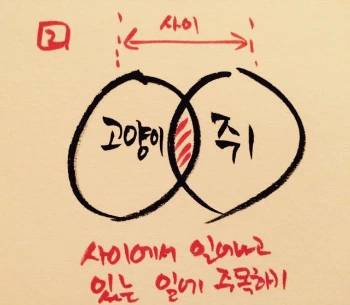 2
사이
고양이
쥐
사이에서 일어나고
있는 일에 주목하기